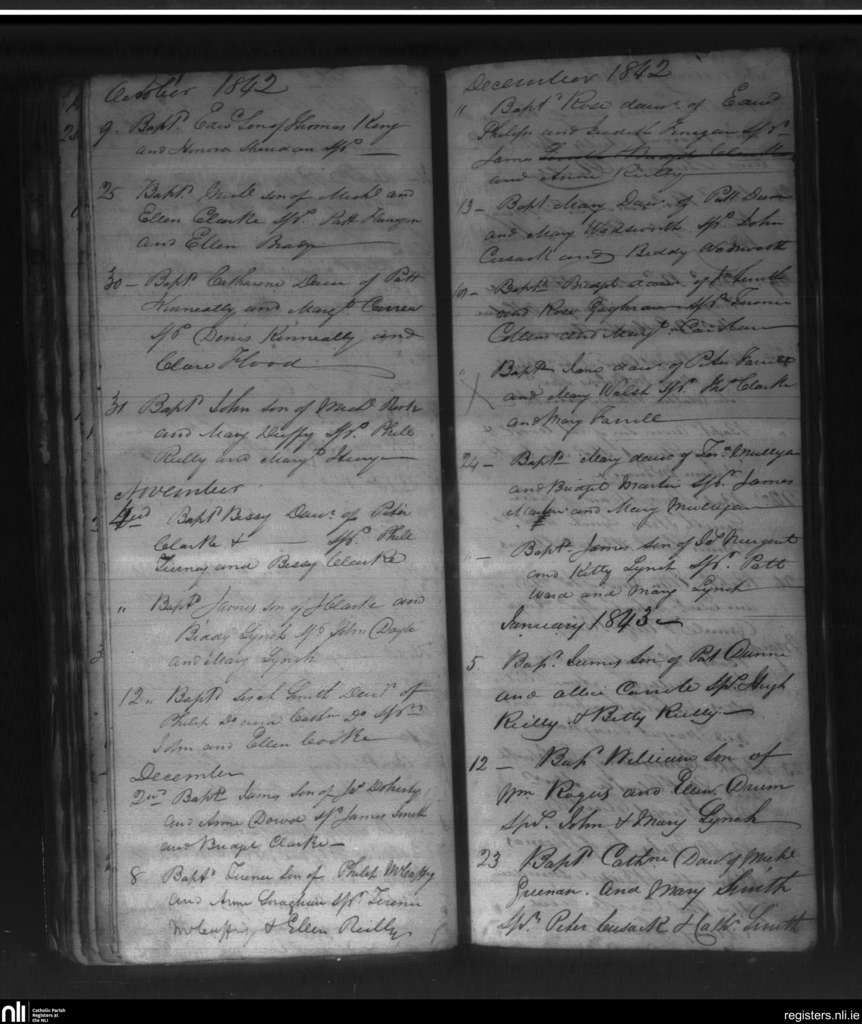 October 1842
9. Bapt. Edwd Son of Thomas King
and Honora Sheridan Sprs
25 Bapt. son of Michl and
Ellen Clarke Sprs. Patt Flanigan
and Ellen Brady
30 – Baptd Catharine Daur of Patt
Kinneally and Margt Curren
Sprs Denis Kinneally and
Clare Flood
31 Baptd John Son of Michl
and Mary Duffy Sprs. Phill
Reilly and Margt
November
3rd Baptd Bessy Daur. of Peter
Clarke & — Sprs. Phill
Tierney and Bessy Clarke
" Baptd James son of J Clarke and
Biddy Lynch Sprs John Doyle
and Mary Lynch
12 " Baptd Smith Daur. of
Philip Do and Cathn Do Sprs
John and Ellen Cooke
December
2nd Baptd James Son of Jas Doherty
and Anne Dowd Sprs James Smith
and Bridget Clarke –
8 Baptd Terence Son of Philip McCaffry
and Anne Geraghan Sprs. Terence
McCaffry & Ellen Reilly
December 1842
" Baptd Rose daur. of
Philips and Judith Finegan Sprs
James
and Anne Reilly
13 – Bapt. Mary Daur. of Patt Drum
and Mary Wadsworth Sprs John
Cusack and Biddy Wadsworth
– Baptd Bridget daur. of Js Smith
and Rose Sprs. Terence
and Margt.
" Baptd Jane daur. of Peter Farrell
and Mary Walsh Sprs. Thos Clarke
and Mary Farrell
24 – Baptd Mary daur of Mulligan
and Bridget Martin Sprs. James
Martin and Mary Mulligan
" – Baptd. James son of Js Nugent
and Kitty Lynch Sprs. Patt
Ward and Mary Lynch
January 1843 –
5. Bapd. James Son of Pat Dunne
and Sprs. Hugh
Reilly & Betty Reilly –
12 – Bapd William Son of
Wm Rogers and Ellen Drum
Sprs. John & Mary Lynch
23 Baptd Cathne Daur of Michl
Greenan. and Mary Smith
Sprs. Peter Cusack & Cathn. Smith
nli
Catholic Parish
Registers at
the NLI
registers.nli.ie